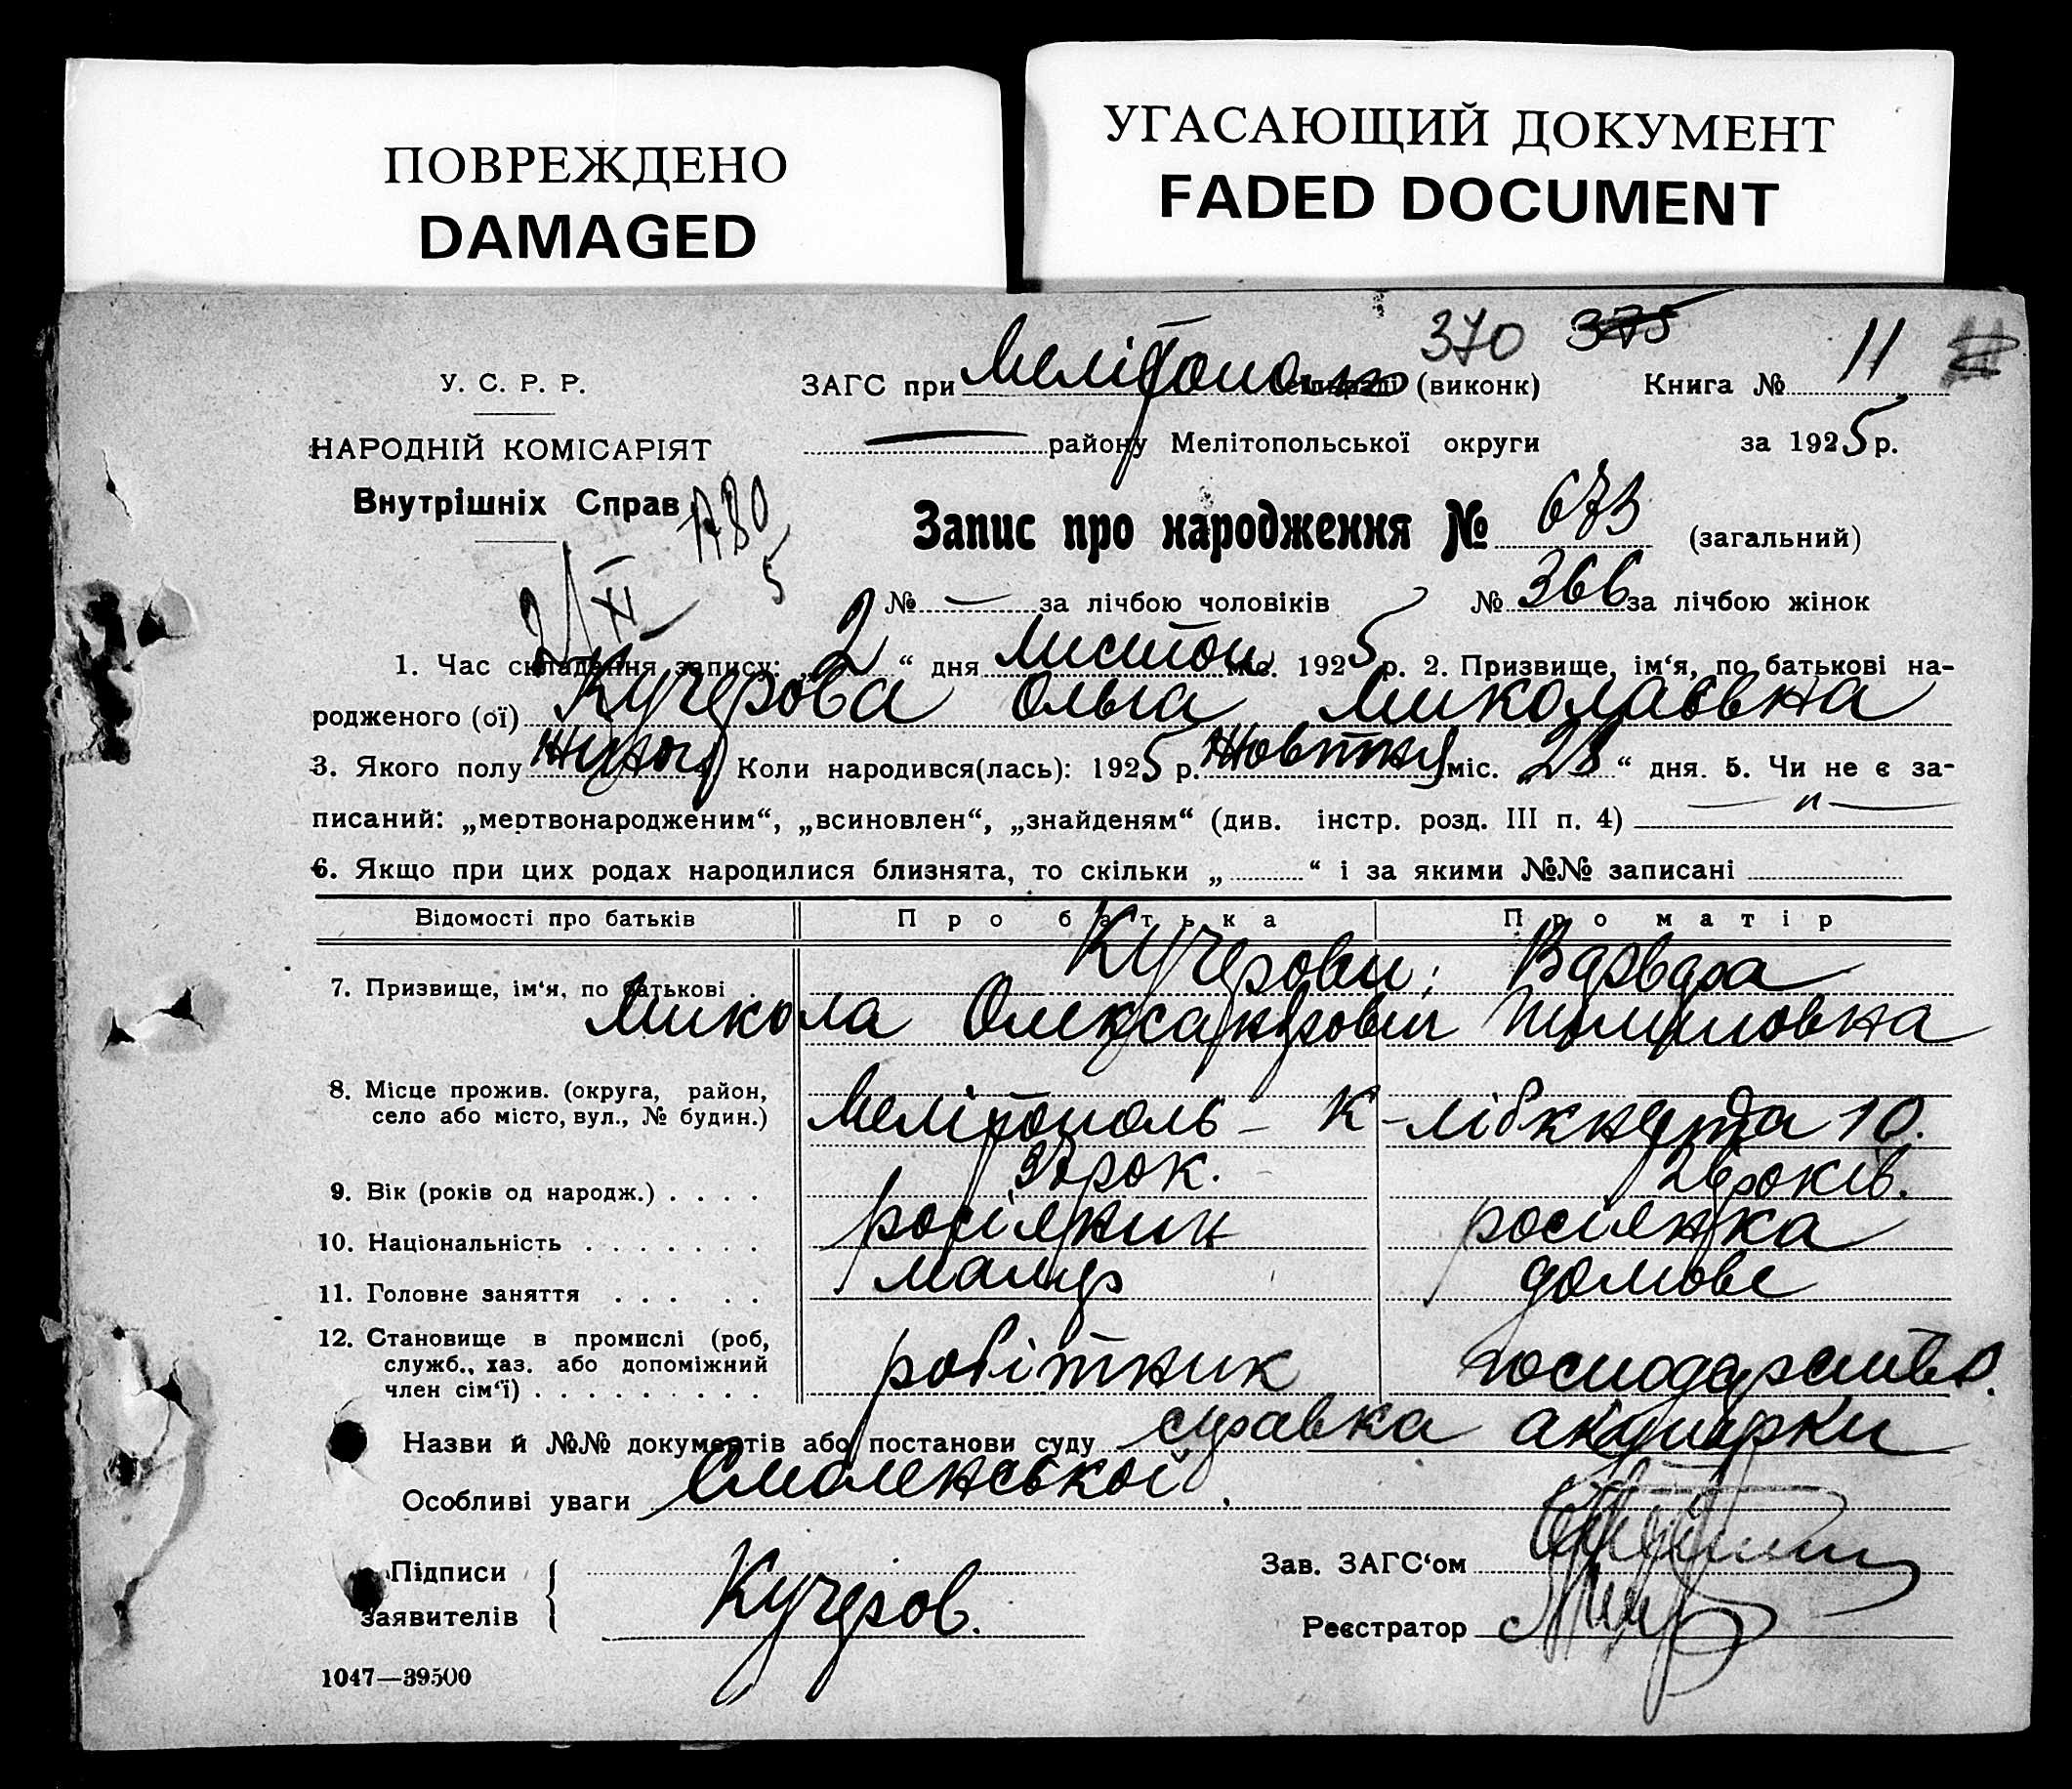 ПОВРЕЖДЕНО
DAMAGED
УГАСАЮЩИЙ ДОКУМЕНТ
FADED DOCUMENT
370 375
У. С. Р. Р.
ЗАГС при Меліт (виконк) Книга № 11
НАРОДНІЙ КОМІСАРІЯТ
району Мелітопольської округи за 1925 р.
Внутрішніх Справ
Запис про народження № 673 (загальний)
№ — за лічбою чоловіків № 366 за лічбою жінок
1. Час складання запису: „2“ дня Листоп міс. 1925 р. 2. Призвище, ім‘я, по батькові на-
родженого (ої) Кучерова Ольга Миколаєвна
3. Якого полу жіночої 4. Коли народився(лась): 1925 р. Жовтня міс. „28“ дня. 5. Чи не є за-
писаний: „мертвонародженим“, „всиновлен“, „знайденям“ (див. інстр. розд. III п. 4) — „ —
6. Якщо при цих родах народилися близнята, то скільки „ “ і за якими №№ записані
Відомості про батьків Про батька Про матір
7. Призвище, ім‘я, по батькові Кучерови; Варвара
Микола Олександрович Пилиповна
8. Місце прожив. (округа, район,
село або місто, вул., № будин.) Мелітополь – К-Лібкнехта 10.
9. Вік (років од народж.) . . . . рок. 26 років.
10. Національність . . . . . . . росіянин росіянка
11. Головне заняття . . . . . маляр домове
12. Становище в промислі (роб,
служб., хаз. або допоміжний
член сім‘ї) . . . . . . . . . робітник господарство.
Назви й №№ документів або постанови суду справка акушерки
Особливі уваги Смоленської.
Підписи
заявителів Кучеров.
Зав. ЗАГС‘ом
Реєстратор
1047—39500